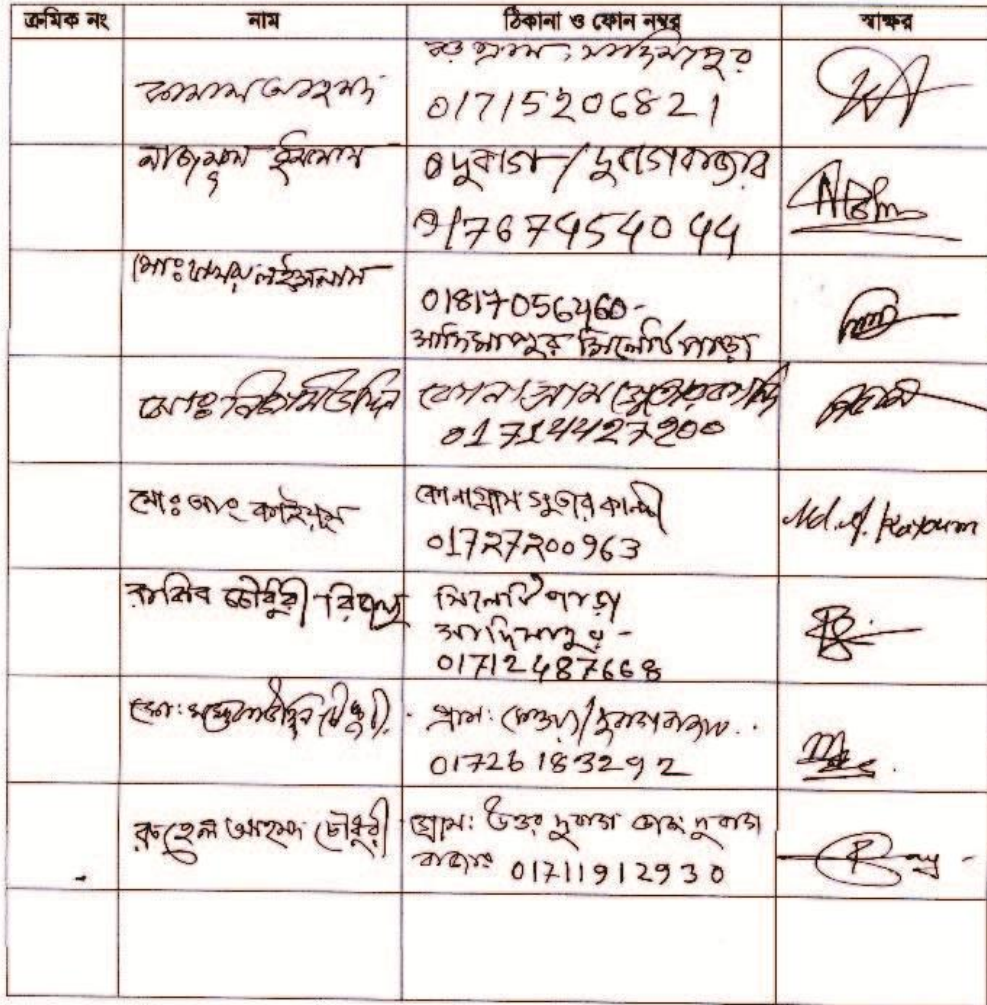 ক্রমিক নং নাম ঠিকানা ও ফোন নম্বর স্বাক্ষর
কামাল আহমদ
01715206821
নাজমুল ইসলাম দুবাগ / দুবাগ বাজার
01767454044
মোঃ ইসলাম
01817056460-
সিলেটি পাড়া
মোঃ নিজাম উদ্দিন কোনাগ্রাম সুতারকান্দি
01714427200
মোঃ আং কাইয়ুম কোনাগ্রাম সুতার কান্দী Md. A. Kayoum
01727200963
রাকিব চৌধুরী সিলেটি পাড়া
01712487668
মোঃ চৌধুরী গ্রাম: / দুবাগ বাজার
01726183292
রুহেল আহমদ চৌধুরী গ্রাম: উত্তর দুবাগ ডাক দুবাগ
বাজার 01711912930